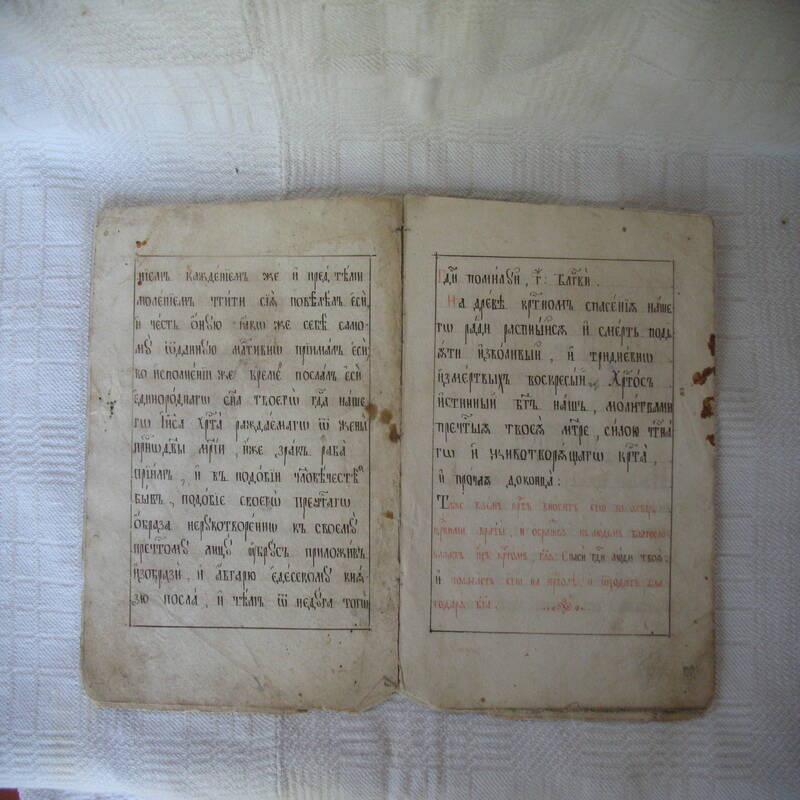 нїемъ кажденїемъ же и҆ предтѣми
моленїемъ чтити сїѧ повелѣлъ є҆си̂
и҆ честь ѻ҆ную ꙗ҆кѡ же себѣ само-
му ѿданную млⷭ҇тивнѡ прїималъ є҆си̂
во и҆сполненїи же време посла́лъ є҆си̂
є҆динороднагѡ сн҃а твоегѡ̀ гдⷭ҇а наше
гѡ і҆и҃са хрⷭ҇та̀ раждаемагѡ ѿ жены
прⷭ҇нѡдв҃ы мр҃їи, и҆же зракъ раба̀
прїимъ, и҆ въ подобїи чл҃овѣчестѣ
бывъ, подобїе своегѡ̀ преч҃тагѡ
ѻ҆браза нерукотвореннѡ къ своемꙋ̀
пречⷭ҇томꙋ лицꙋ̀ ѹ҆брꙋсъ приложивъ
и҆зобрази̂, и҆ а҆вгарю є҆десскомꙋ кнѧ-
зю посла̀, и҆ тѣмъ ѿ недꙋга тогѡ̀
Гдⷭ҇и помилꙋй, г҃: бл҃гⷭ҇ви.
На древѣ крⷭ҇тномъ спасенїѧ наше
гѡ ради распныйсѧ и҆ смерть подъ
ѧ҆ти и҆зволивый, и҆ тридневнѡ
и҆змертвыхъ воскресый, Хрⷭ҇то́съ
и҆стинный бг҃ъ нашъ, молитвами
пречⷭ҇тыѧ твоеѧ̀ мт҃ре, силою чтⷭ҇на
гѡ и҆ животворѧщагѡ крⷭ҇та̀,
и҆ прочаѧ доконца̀:
и҆ Спаси гдⷭ҇и люди твоѧ̀,
и҆ полагаетъ є҆го на
годарѧ бг҃а.